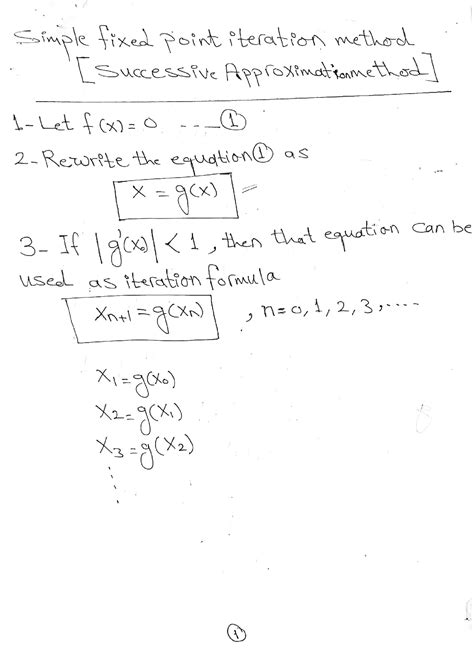 Simple fixed point iteration method
[Successive Approximation method]
1- Let f(x) = 0 ---- ①
2- Rewrite the equation ① as
x = g(x)
3- If |g'(x₀)| < 1, then that equation can be
used as iteration formula
Xn+1 = g(XN) , n=0, 1, 2, 3, ....
X1 = g(X0)
X2 = g(X1)
X3 = g(X2)
⋮
①